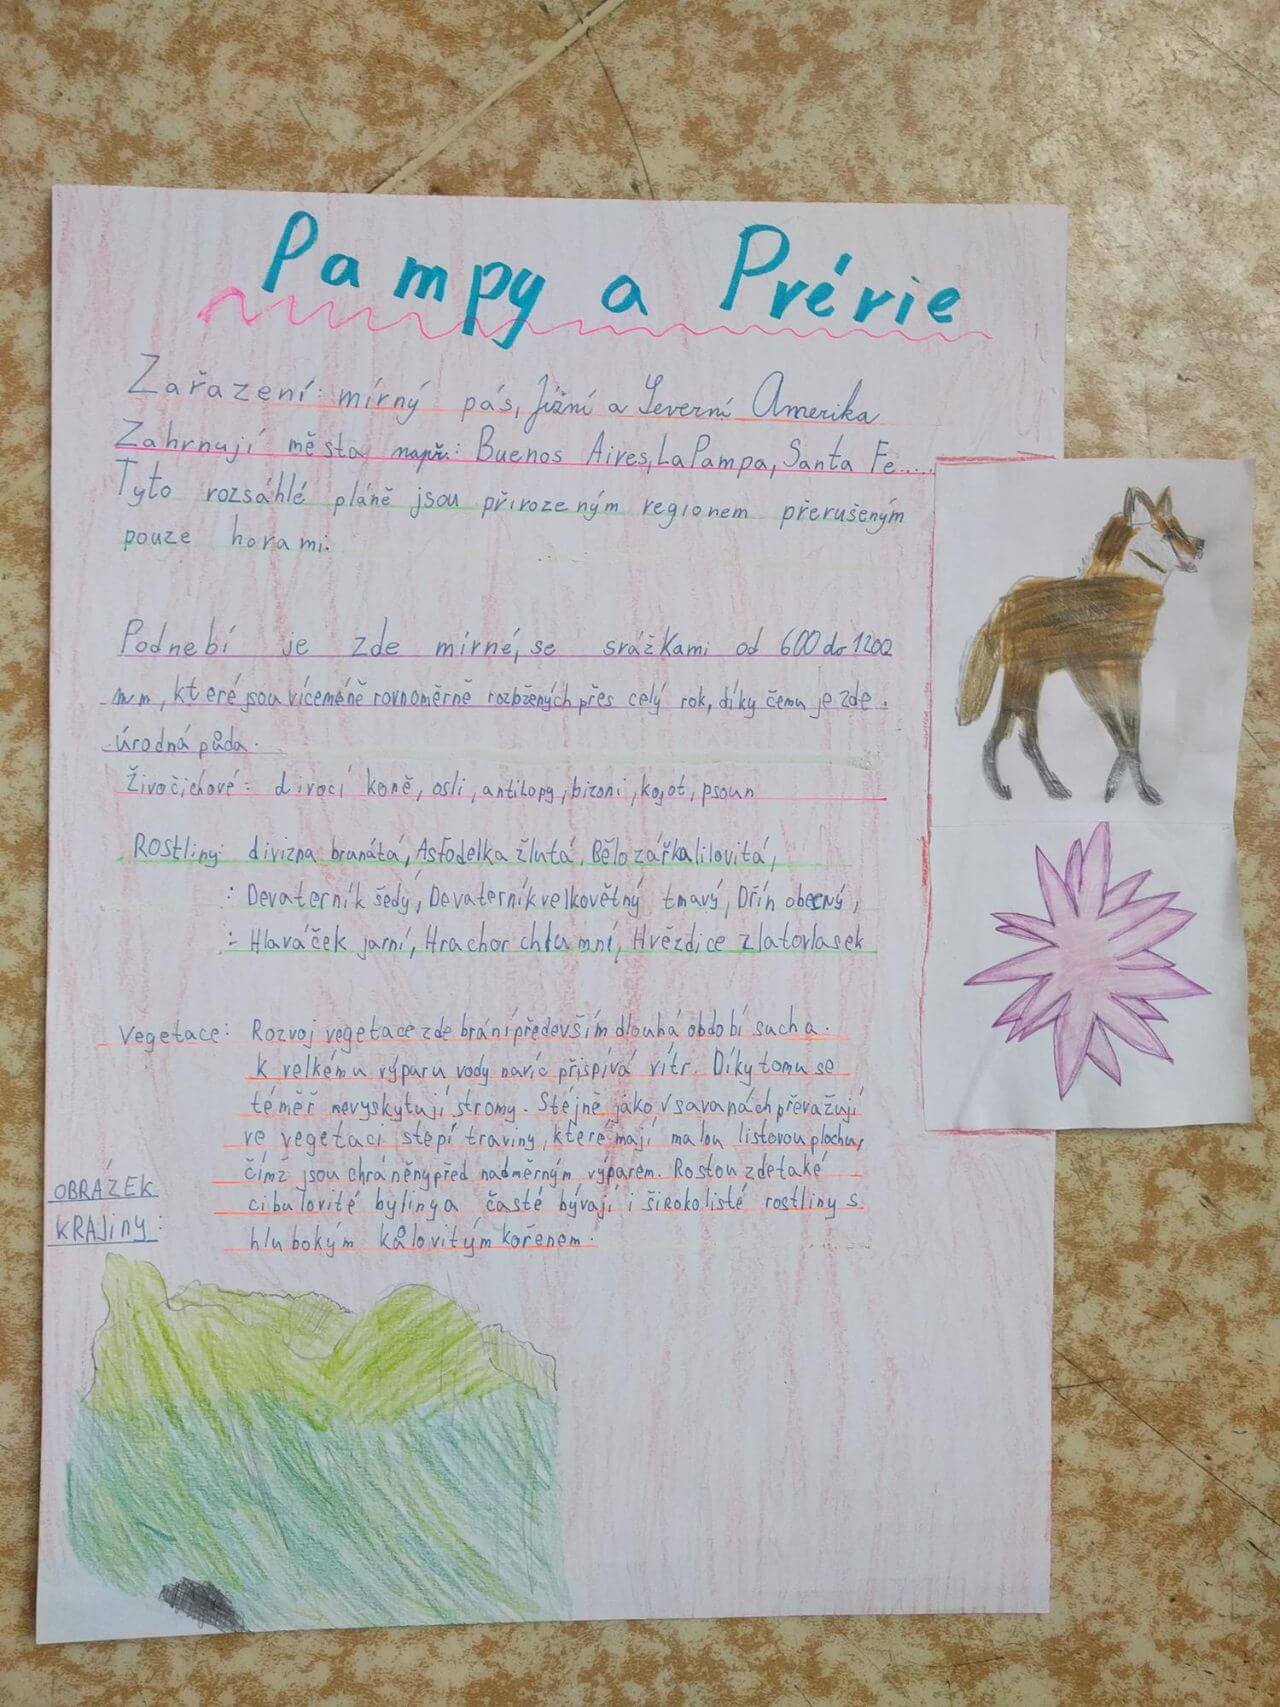 Pampy a Prérie
Zařazení: mírný pás, Jižní a Severní Amerika
Zahrnují města např.: Buenos Aires, La Pampa, Santa Fe.....
Tyto rozsáhlé pláně jsou přirozeným regionem přerušeným
pouze horami.
Podnebí je zde mírné, se srážkami od 600 do 1200
mm, které jsou víceméně rovnoměrně rozbžených přes celý rok, díky čemu je zde
úrodná půda.
Živočichové: divocí koně, osli, antilopy, bizoni, kojot, psoun
Rostliny: divizna branátá, Asfodelka žlutá, Bělozářka lilovitá,
: Devaterník šedý, Devaterník velkovětný tmavý, Dřín obecný,
: Hlaváček jarní, Hrachor chlumní, Hvězdice zlatovlasek
Vegetace: Rozvoj vegetace zde brání především dlouhá období sucha.
K velkému výparu vody navíc přispívá vítr. Díky tomu se
téměř nevyskytují stromy. Stejně jako v savanách převažují
ve vegetaci stepí traviny, které mají malou listovou plochu,
čímž jsou chráněny před nadměrným výparem. Rostou zde také
cibulovité byliny a časté bývají i širokolisté rostliny s
hlubokým kůlovitým kořenem.
OBRÁZEK
KRAJINY: